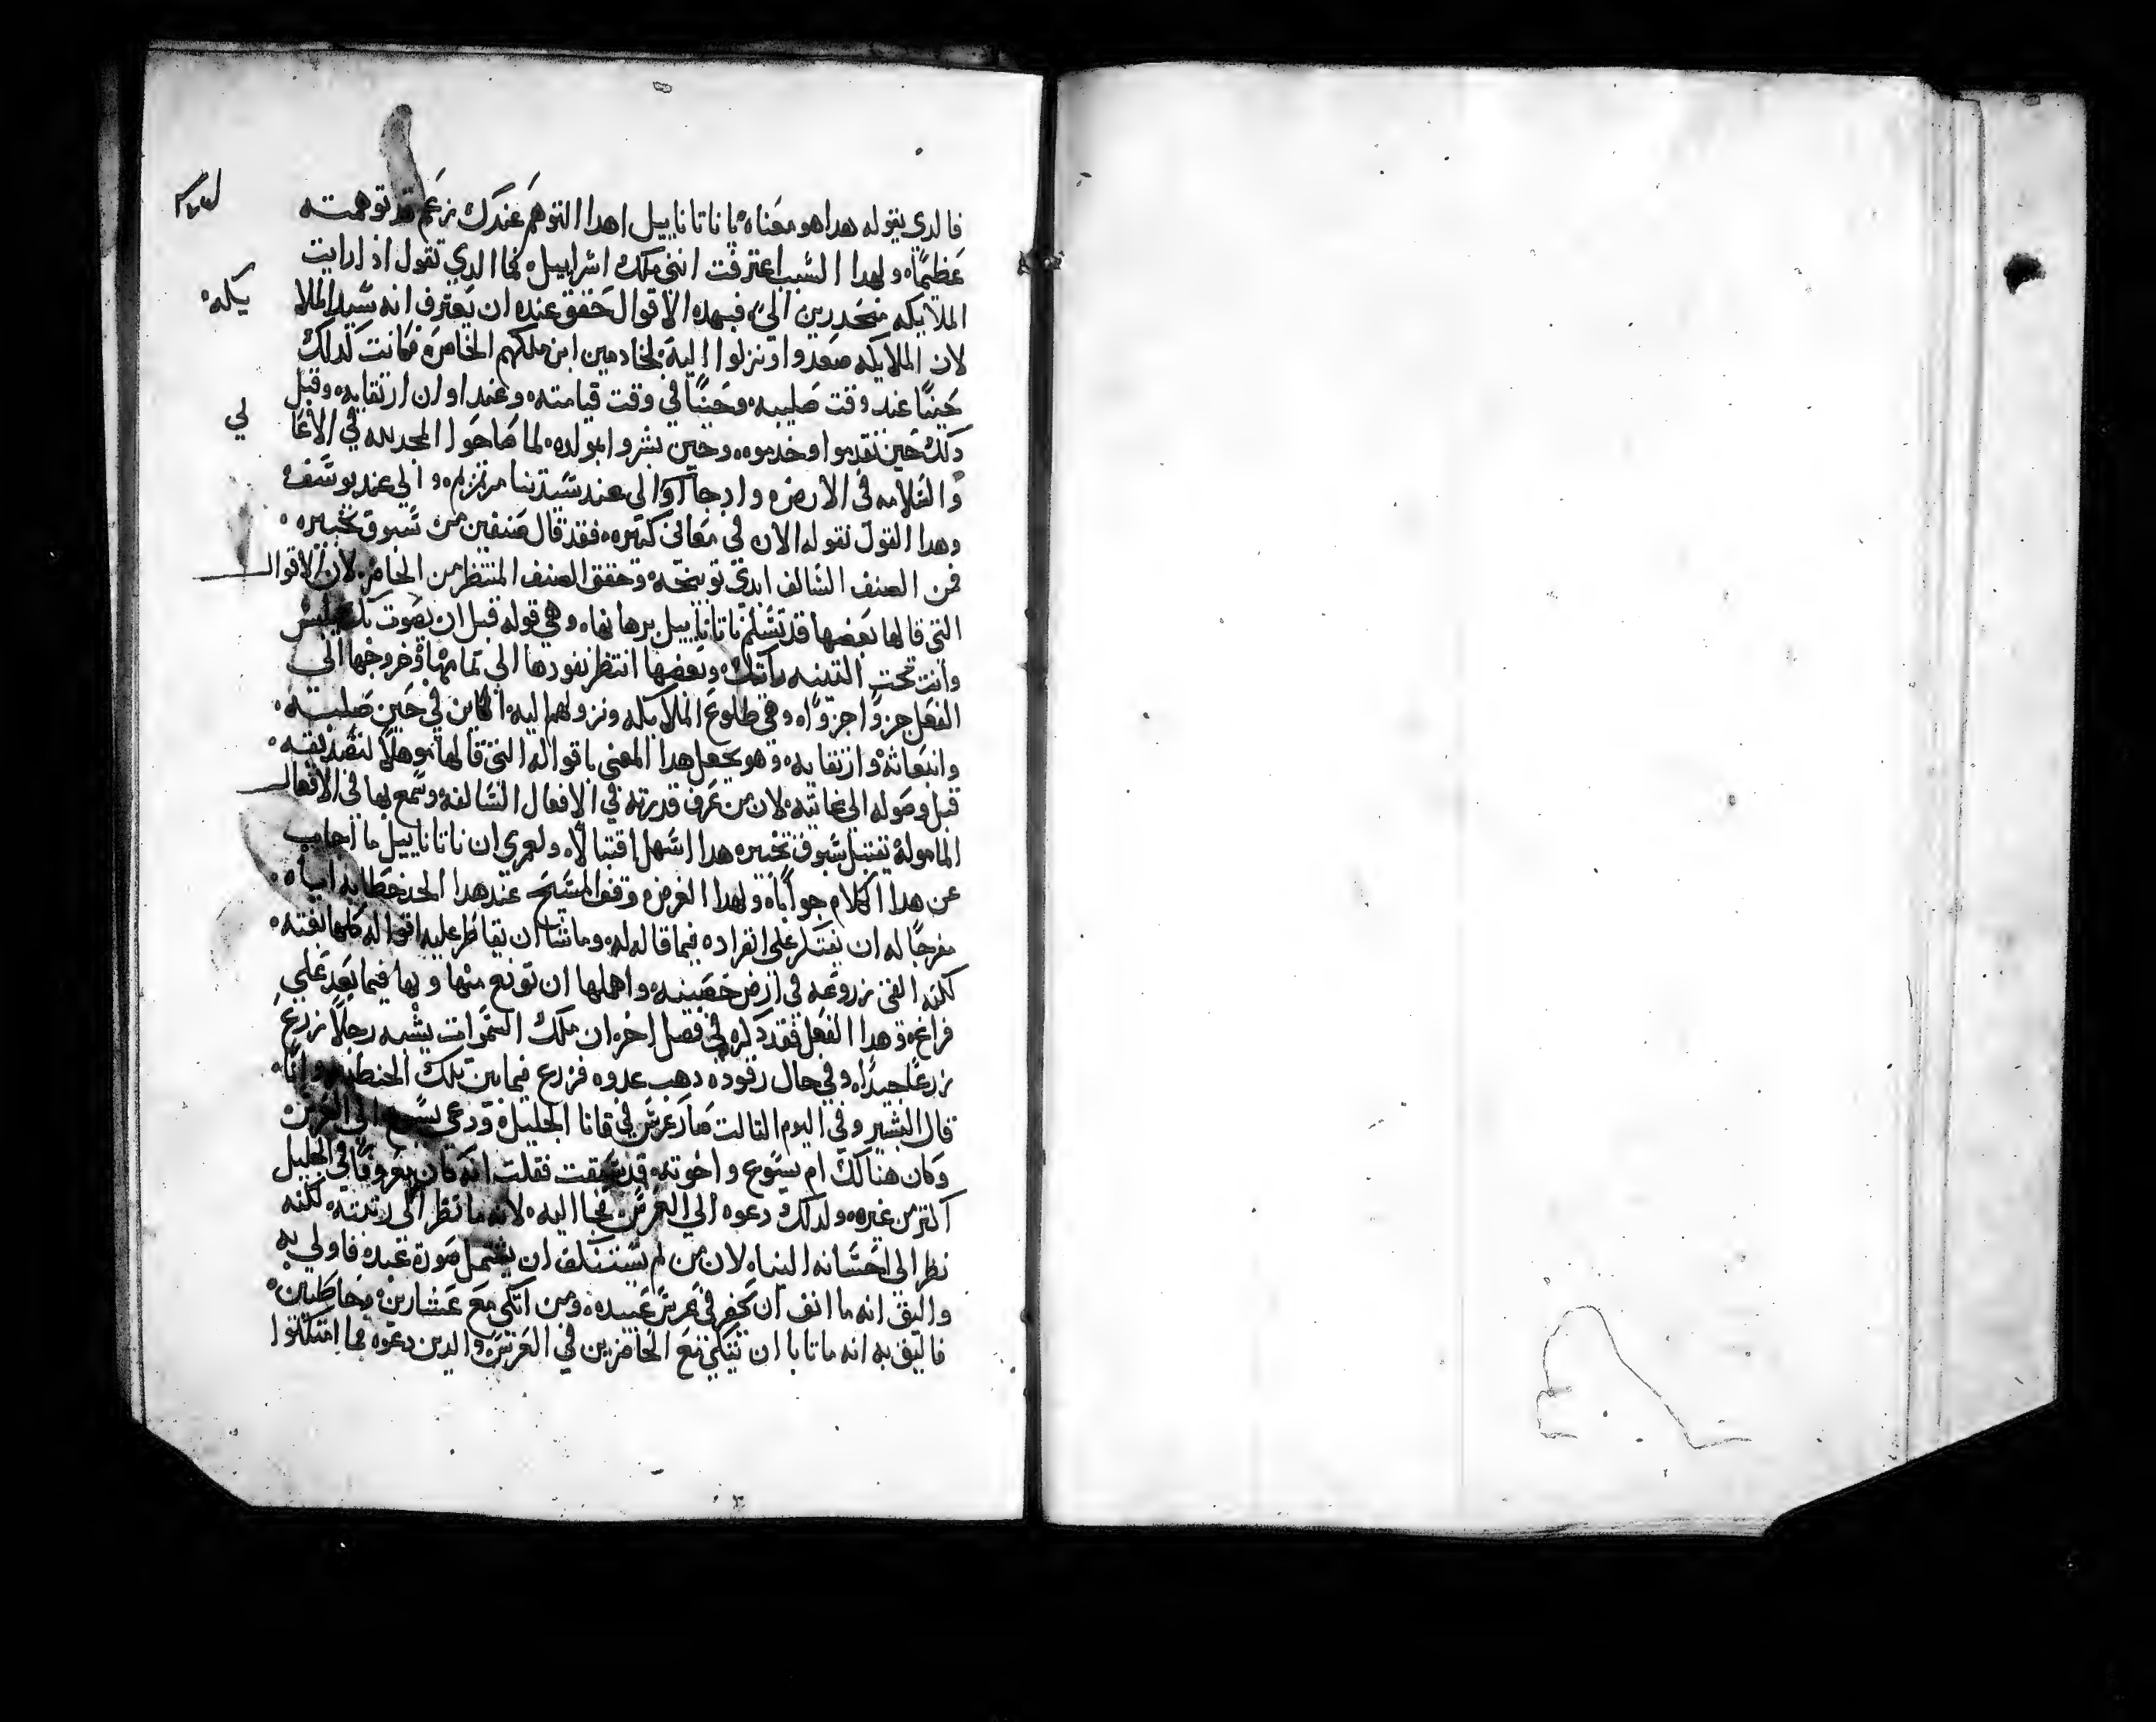 فالدي يقوله هدا هو معناه يا ناتاناييل اهدا التوهم عندك زعم قد توهمته
عظيمًا، ولهدا السبب اعترفت انني ملك اسراييل، فما الدي تقول ادا رايت
الملايكه منحدرين اليَّ، فبهده الاقوال حقق عنده ان يعترف انه سيد الملا
يكه،
لان الملايكه صعدوا ونزلوا اليه كخادمين ابن ملكهم الخاص، فكانت كدلك
حينًا عند وقت صليبه، وحينًا في وقت قيامته، وعند اوان ارتقايه، وقبل
دلك حين تقدموا وخدموه، وحين بشروا بمولده، لما صاحوا المجد لله في الاعا
لي
والسلامه في الارض، واد جاآوا الي عند سيدتنا مرتمريم، والي عند يوسف،
وهدا القول نقوله الان في معاني كتيره، فقد قال صنفين من سبوق تخبيره،
فمن الصنف السالف ابدي توبيخه، وحقق الصنف المنتظر من الحاضر، لان الاقوال
التي قالها بعضها قد تسلم ناتاناييل برهانها، وهي قوله قبل ان يصوت بك فيلبس
وانت تحت التينه رايتك، وبعضها انتظر نفودها الي تمامها، وخروجها الي
الفعل جزوًا جزوًا، وهي طلوع الملايكه ونزولهم اليه، الكاين في حين صليبه،
وانبعاثه وارتقايه، وهو يجعل هدا المعني باقواله التي قالها موهلًا لتصديقه،
قبل وصوله الي غايته، لان من عرف قدرته في الافعال السالفه وسمع بها في الافعال
المامولة يقتبل سبوق تخبيره هدا اسهل اقتبالًا، ولعمري ان ناتاناييل ما اجاب
عن هدا الكلام جوابًا، ولهدا الغرض، وقف المسيح عند هدا الحد خطابه اياه،
مفرجًا له ان يفتكر علي انفراده فيما قاله له، وما شا ان يقاطر عليه اقواله كلها بغته،
لكنه القي زروعه في ارض خصيبه، واهملها ان تونع منها وبها فيما بعد علي
فراغ، وهدا الفعل فقد دكره في فصل اخر، ان ملك السموات يشبه رجلًا زرع
زرعًا جيدًا، وفي حال رقوده دهب عدوه فزرع فيما بين تلك الحنطه زوانًا،
قال البشير وفي اليوم التالت صار عرس في قانا الجليل، ودعي يسوع الي العرس،
وكان هنالك ام يسوع واخوته، قد سبقت فقلت انه كان معروفًا في الجليل
اكتر من غيره، ولدلك دعوه الي العرس، فجا اليه، لانه ما نظر الي رتبته، لكنه
نظر الي احسانه الينا، لان من لم يستنكف ان يشتمل صورة عبده، فاولي به
واليق انه ما انف ان يحضر في عرس عبيده، ومن اتكي مع عشارين، وخاطيين،
فاليق به انه ما تابا ان يتكي مع الحاضرين في العرس، والدين دعوه فما امتلكوا